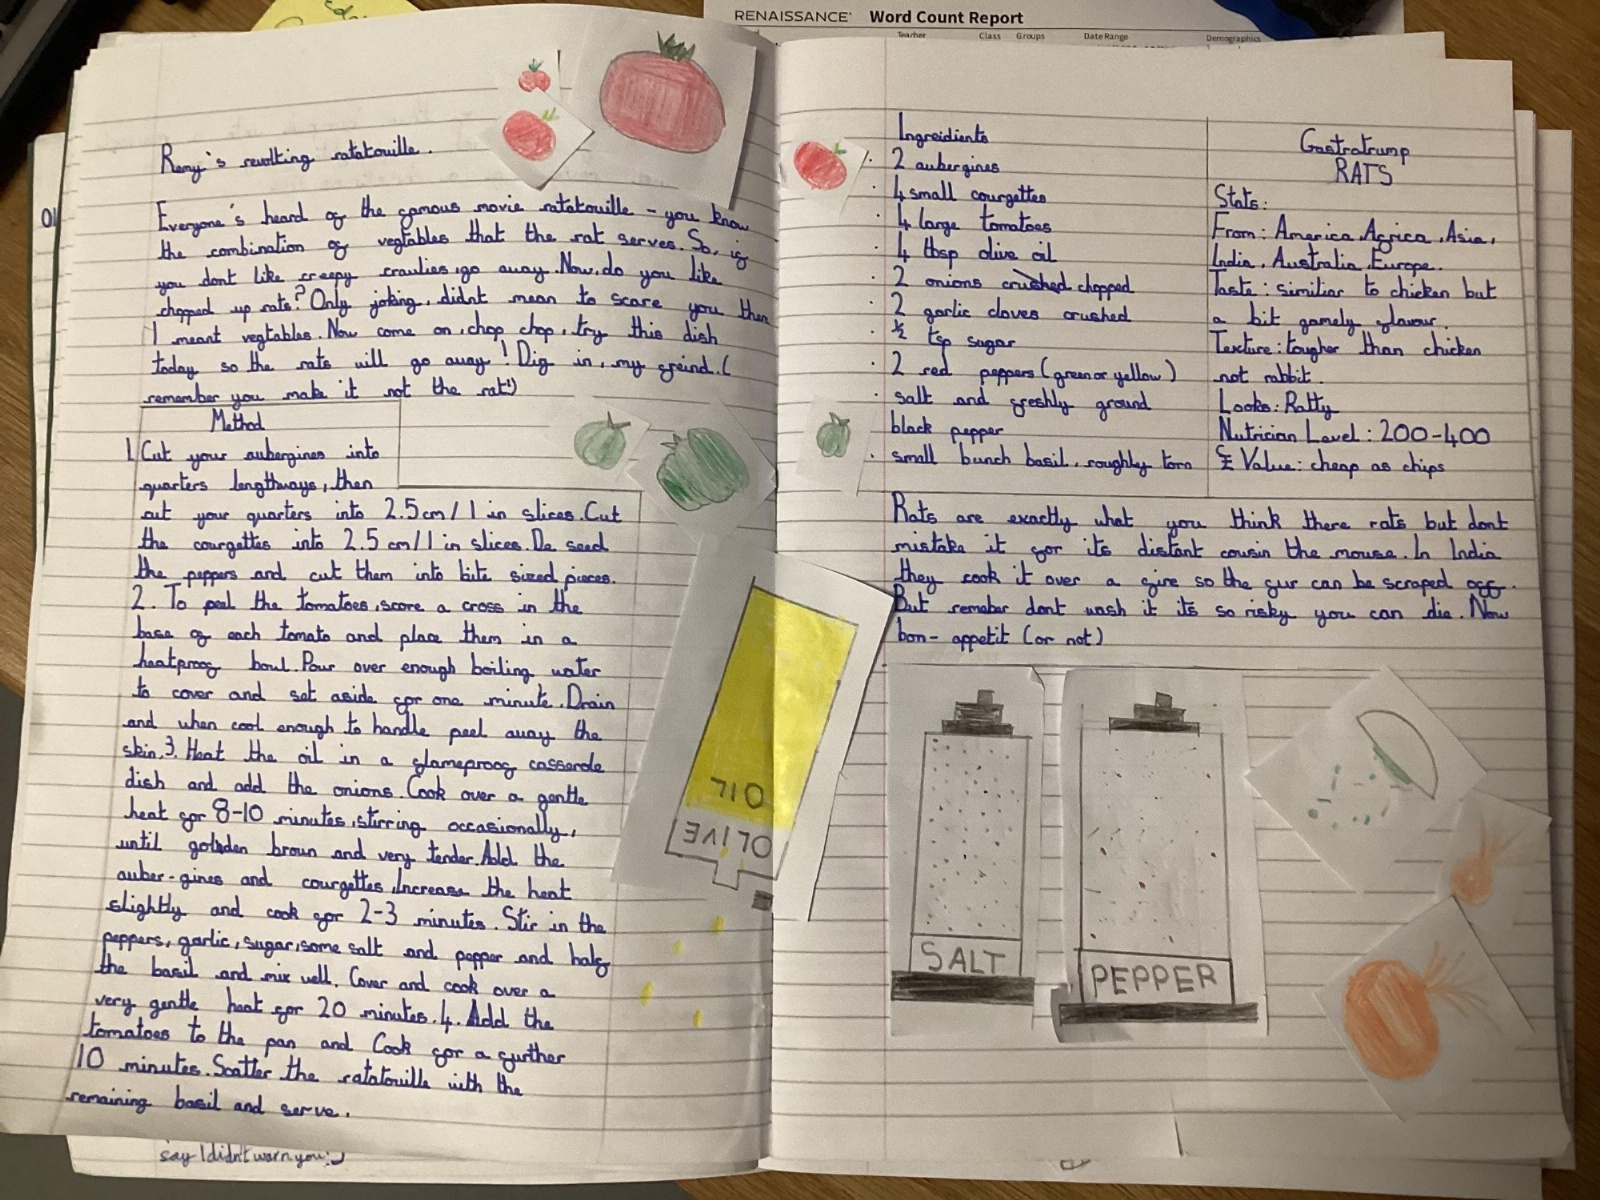 RENAISSANCE Word Count Report
Teacher Class Groups Date Range Demographics
Remy's revolting ratatouille.
Everyone's heard of the famous movie ratatouille - you know
the combination of vegtables that the rat serves. So, if
you dont like creepy craulies, go away. Now, do you like
chopped up rats? Only joking, didnt mean to scare you then
I meant vegtables. Now come on, chop chop, try this dish
today so the rats will go away! Dig in, my freind. (
remember you make it not the rat!)
Method
1. Cut your aubergines into
quarters lengthways, then
cut your quarters into 2.5cm/1 in slices. Cut
the courgettes into 2.5 cm/1 in slices. De seed
the peppers and cut them into bite sized pieces.
2. To peel the tomatoes, score a cross in the
base of each tomato and place them in a
heatproof bowl. Pour over enough boiling water
to cover and set aside for one minute. Drain
and when cool enough to handle peel away the
skin. 3. Heat the oil in a flameproof casserole
dish and add the onions. Cook over a gentle
heat for 8-10 minutes, stirring occasionally,
until golden brown and very tender. Add the
auber-gines and courgettes, Increase the heat
slightly and cook for 2-3 minutes. Stir in the
peppers, garlic, sugar, some salt and pepper and half
the basil and mix well. Cover and cook over a
very gentle heat for 20 minutes. 4. Add the
tomatoes to the pan and Cook for a further
10 minutes. Scatter the ratatouille with the
remaining basil and serve.
say I didn't warn you
OLIVE
OIL
Ingreidients
2 aubergines
4 small courgettes
4 large tomatoes
4 tbsp olive oil
2 onions crushed chopped
2 garlic cloves crushed
½ tsp sugar
2 red peppers (green or yellow)
salt and freshly ground
black pepper
small bunch basil, roughly torn
Gastratrump
RATS
Stats:
From: America, Africa, Asia,
India, Australia, Europe.
Taste: similiar to chicken but
a bit gamely flavour.
Texture: tougher than chicken
not rabbit.
Looks: Ratty
Nutrician Level: 200-400
£ Value: cheap as chips
Rats are exactly what you think there rats but dont
mistake it for its distant cousin the mouse. In India
they cook it over a fire so the fur can be scraped off.
But remeber dont wash it its so risky you can die. Now
bon-appetit (or not)
SALT
PEPPER